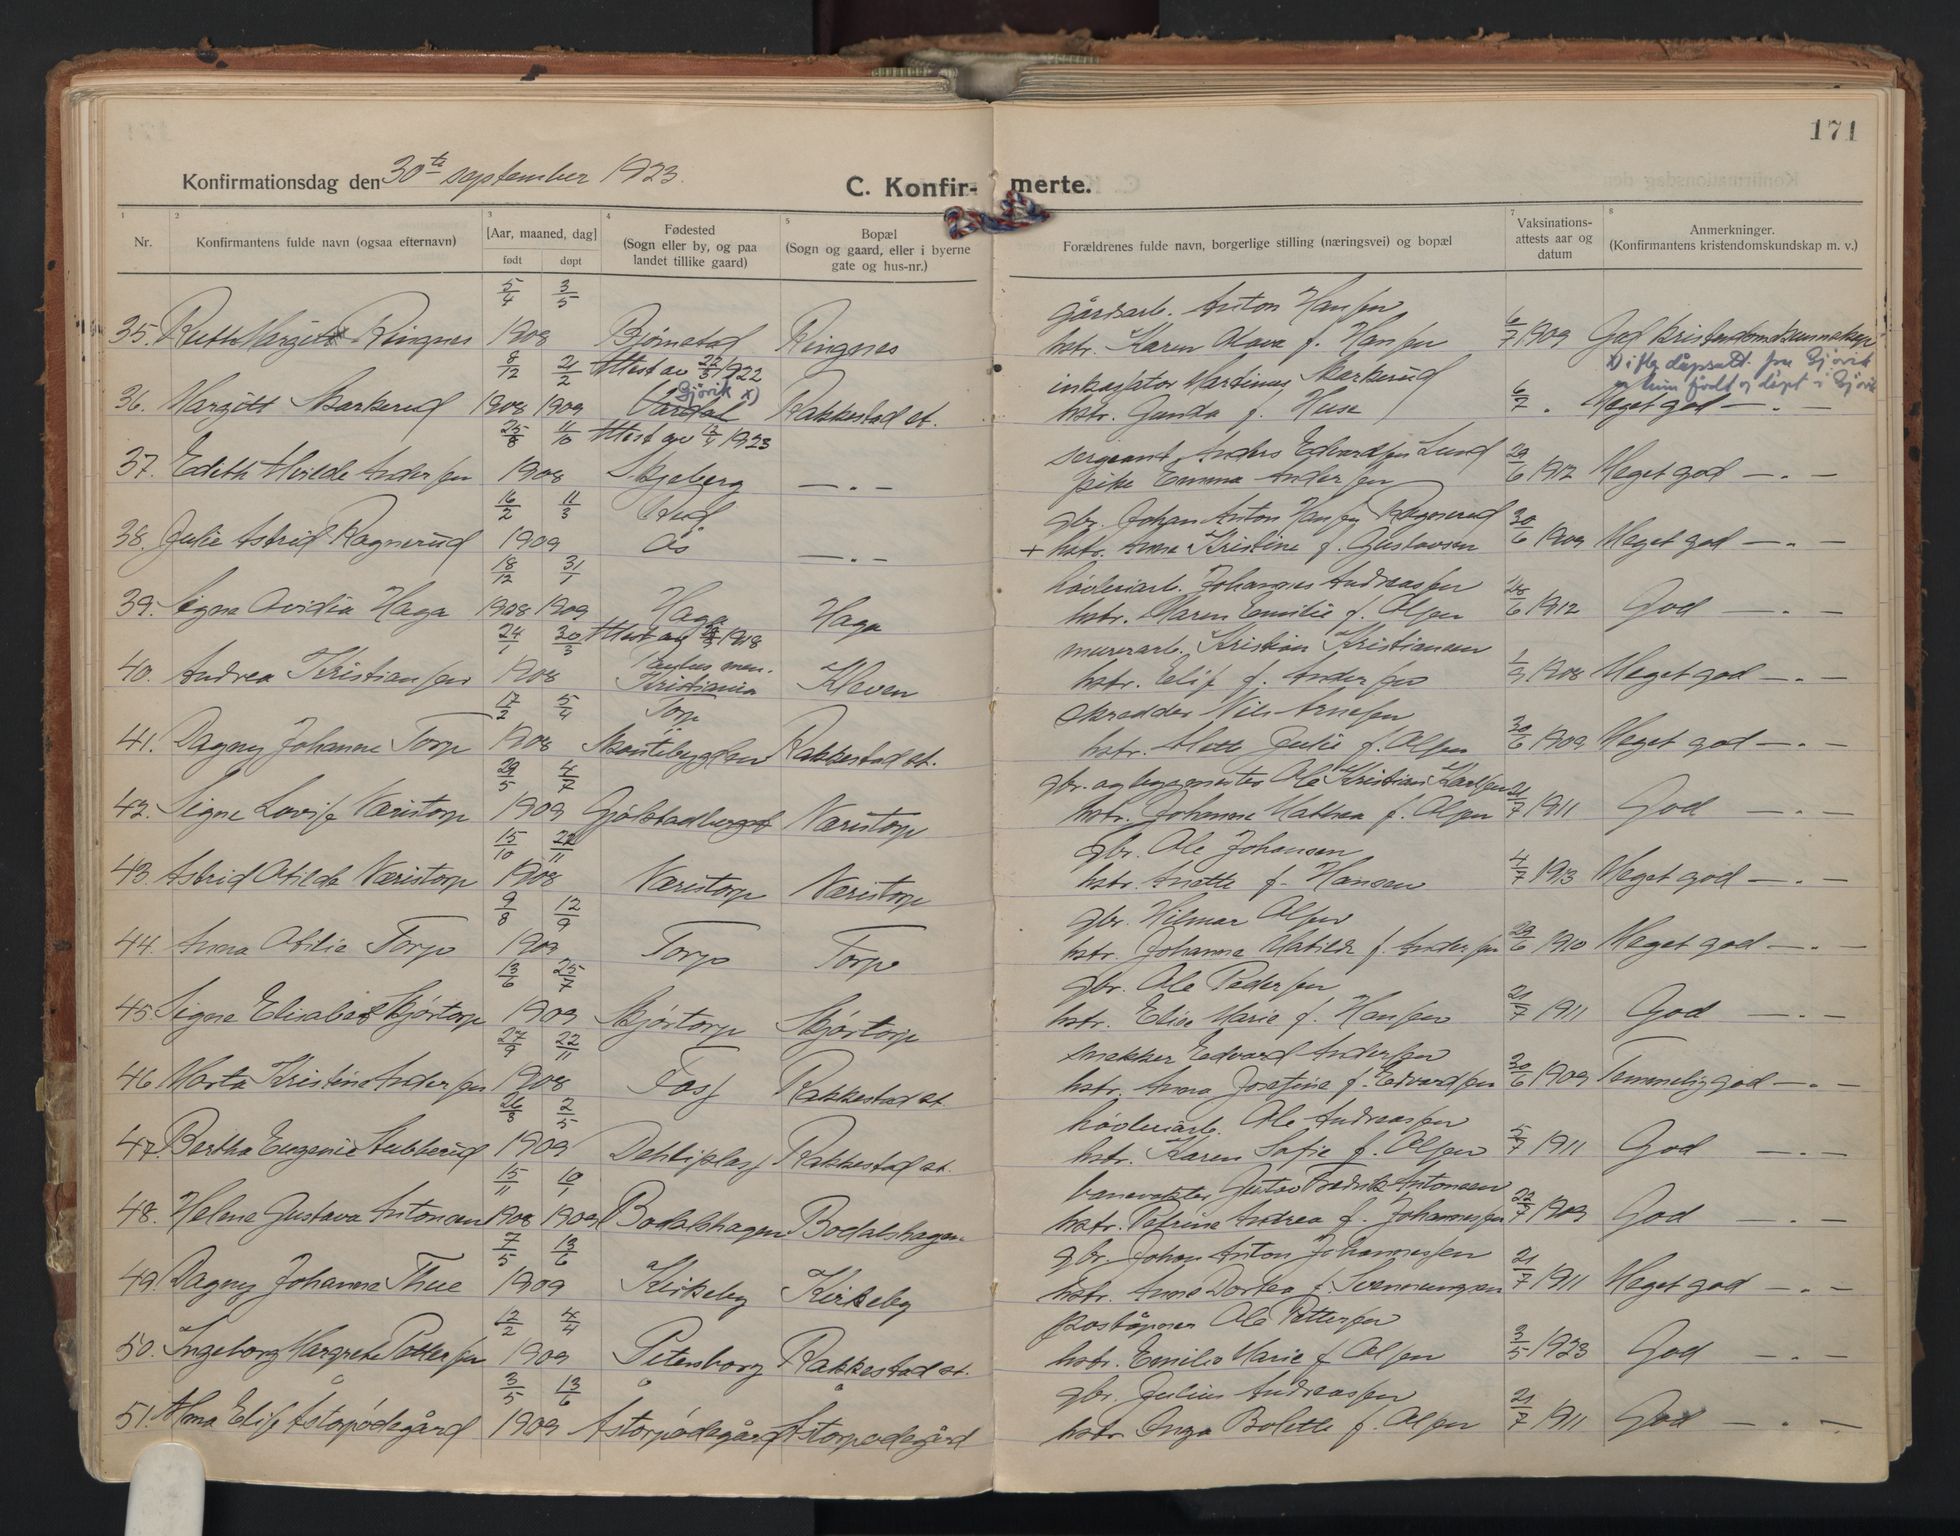 171
Konfirmationsdag den 30te september 1923.
C. Konfir- merte.
1 2 3 4 5 7 8
Nr.
Konfirmantens fulde navn (ogsaa efternavn)
[Aar, maaned, dag]
født døpt
Fødested
(Sogn eller by, og paa
landet tillike gaard)
Bopæl
(Sogn og gaard, eller i byerne
gate og hus-nr.)
Forældrenes fulde navn, borgerlige stilling (næringsvei) og bopæl
Vaksinations-
attests aar og
datum
Anmerkninger.
(Konfirmantens kristendomskundskap m. v.)
5/4 3/5 gårdsarb. Anton Hansen
35. Ruth Margit Ringnes 1908 Bjørnstad Ringnes hstr. Karen Olava f. Hansen 6/7 1909 God kristendomskunnskap
8/12 21/2 Attest av 22/3 1922 Martinus Skarkerud x) iflg dåpsatt. fra Gjøvik
Gjøvik x) er hun født og døpt i Gjøvik
36. Margitt Skarkerud 1908 1909 Vardal Rakkestad st. hstr. Gunda f. Huse 6/7 . Meget god — . —
25/8 11/10 Attest av 1923 sergeant Anders Edvardsen Lund
37. Edith Alvilde Andersen 1908 Skjeberg — . — pike Emma Andersen 29/6 1912 Meget god — . —
16/2 11/3 Rud gbr. Johan Anton Hansen Ragnerud
38. Julie Astrid Ragnerud 1909 Os — . — + hstr. Anna Kristine f. Gustavsen 30/6 1909 Meget god — . —
18/12 31/1 høvleriarb. Johannes Andreassen
39. Signe Ovidia Haga 1908 1909 Haga Haga hstr. Maren Emilie f. Olsen 28/6 1912 God — . —
24/1 30/3 Attest av 1918 murerarb. Kristian Kristiansen
Paulus men.
40. Andrea Kristiansen 1908 Kristiania Kleven hstr. Elise f. Andersen 1/9 1908 Meget god — . —
17/2 5/4 Torp skredder Nils Arnesen
41. Dagny Johanne Torp 1908 Skantebygden Rakkestad st. hstr. Alette Julie f. Olsen 30/6 1909 Meget god — . —
29/5 4/7 gbr. og byggmester Ole Kristian Karlsen
42. Signe Lovise Næristorp 1909 Gjølstadberget Næristorp hstr. Johanne Mathea f. Olsen 21/7 1911 God — . —
15/10 22/11 gbr. Ole Johansen
43. Astrid Otilde Næristorp 1908 Næristorp Næristorp hstr. Anette f. Hansen 4/7 1913 Meget god — . —
9/8 12/9 gbr. Hilmar Olsen
44. Anna Otilie Torp 1909 Torp Torp hstr. Johanne Matilde f. Andersen 29/6 1910 Meget god — . —
13/6 25/7 gbr. Ole Pedersen
45. Signe Elisabet Skjørtorp 1909 Skjørtorp Skjørtorp hstr. Elise Marie f. Hansen 21/7 1911 God — . —
27/9 22/11 snekker Edvard Andersen
46. Marta Kristine Andersen 1908 Foss Rakkestad st. hstr. Anna Josefine f. Edvardsen 30/6 1909 Temmelig god — . —
26/3 2/5 høvleriarb. Ole Andreassen
47. Bertha Eugenie Stubberud 1909 Dehliplass Rakkestad st. hstr. Karen Sofie f. Olsen 5/7 1911 God — . —
15/11 10/1 banevokter Gustav Fredrik Antonsen
48. Helene Gustava Antonsen 1908 1909 Bodalshagen Bodalshagen hstr. Petrine Andrea f. Johannessen 22/7 1909 God — . —
7/5 13/6 gbr. Johan Anton Johannessen
49. Dagny Johanne Thue 1909 Kirkeby Kirkeby hstr. Anne Dortea f. Svenningsen 21/7 1911 Meget god — . —
12/2 4/4 poståpner Ole Pettersen
50. Ingeborg Margrete Pettersen 1909 Petersborg Rakkestad st. hstr. Emilie Marie f. Olsen 3/5 1923 God — . —
3/5 13/6 gbr. Julius Andreassen
51. Alma Elise Åstorpødegård 1909 Åstorpødegård Åstorpødegård hstr. Inga Bolette f. Olsen 21/7 1911 God — . —